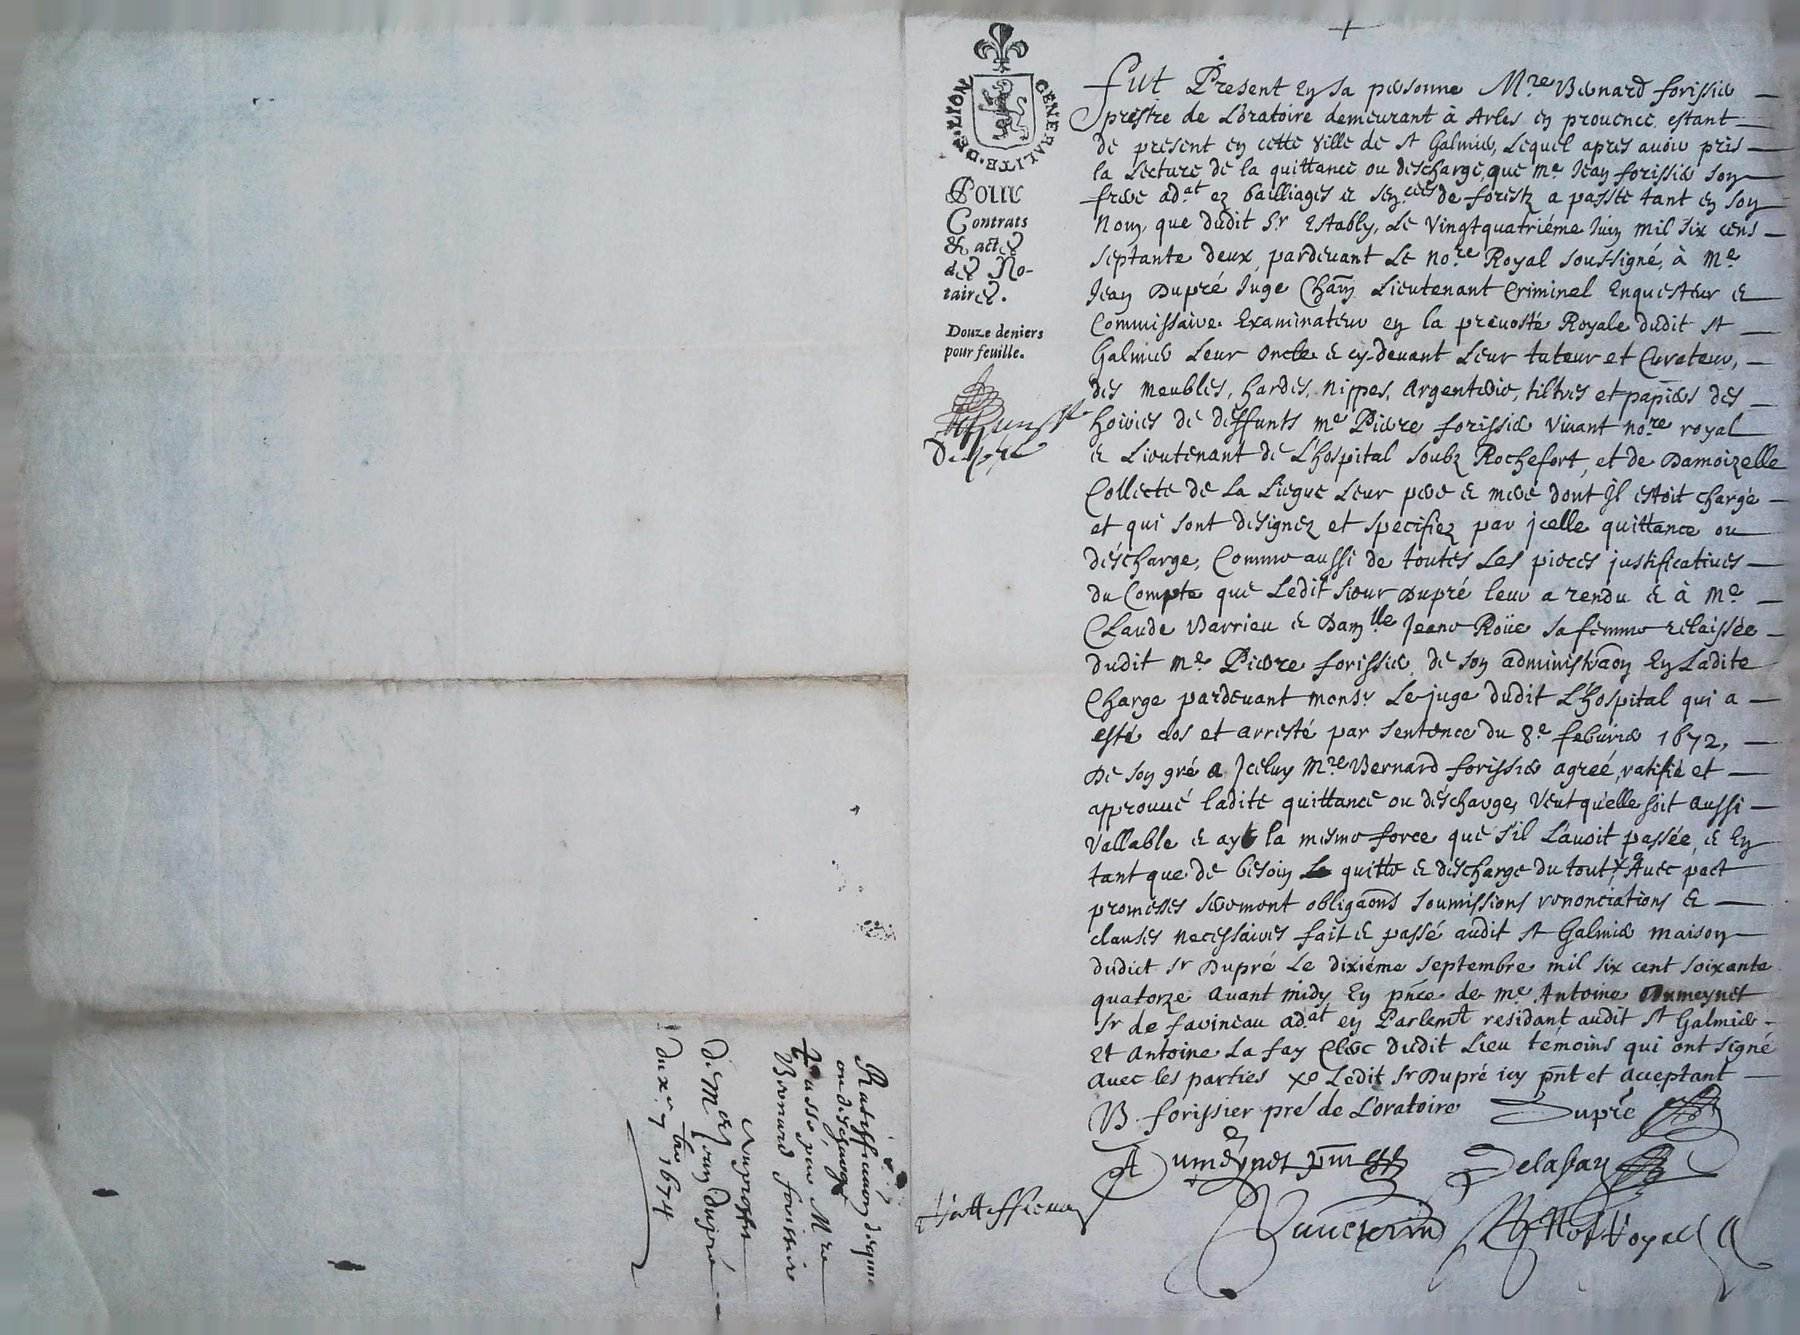 GENERALITE·DE·LION
Pour
Contrats
& actes
des No-
taires.
Douze deniers
pour feuille.
Fut Present En sa personne Mre Bernard forissier
prestre de L'oratoire demeurant à Arles en prouence estant
de present en cette ville de st Galmier, Lequel apres auoir pris
la Lecture de la quittance ou descharge, que Me Jean forissier son
frere adat ez bailliages et senees de forestz a passée tant en son
Nom, que dudit Sr Establÿ, Le vingtquatriéme Juin mil six cens
septante deux, pardeuant Le nore Royal soussigné, à Me
Jean Dupré Juge Chain Lieutenant Criminel Enquesteur et
Commissaire Examinateur en la preuosté Royale dudit st
Galmier Leur oncle et cy-deuant Leur tuteur et Curateur,
des meubles, hardes, nippes, Argenterie, tiltres et papiers des
hoiries de deffunts me Pierre forissier viuant nore royal
et Lieutenant de L'hospital soubz Rochefort, et de Damoizelle
Collecte de La Liegue Leur pere et mere dont Jl estoit chargé
et qui sont designez et specifiez par jcelle quittance ou
descharge, Comme aussi de toutes Les pieces justificatiues
du Compte que Ledit sieur Dupré leur a rendu et à Me
Claude Barrieu et Damlle Jeane Roüe sa femme relaissée
dudit Me Pierre forissier, de son administraon En Ladite
Charge pardeuant monsr Le juge dudit L'hospital qui a
esté clos et arresté par sentence du 8e feburier 1672,
De son gré a Jceluy Mre Bernard forissier agreé, ratifié et
approuué ladite quittance ou descharge, Veut qu'elle soit aussi
Vallable et ayt la mesme force que s'il L'auoit passée, et En
tant que de besoin Le quitte et descharge du tout xo Auec pact
promesses serement obligaons soumissions renonciations et
clauses necessaires fait et passé audit st Galmier maison
dudict Sr Dupré Le dixiéme Septembre mil six cent soixante
quatorze auant midy En pnce de me Antoine Dumeynet
Sr de favineau adat en Parlemt residant audit st Galmier
Et Antoine La fay Clerc dudit Lieu temoins qui ont signé
Auec les parties xo Ledit Sr Dupré icy pnt et acceptant
B forissier pre de L'oratoire Dupré
A Dumeynet pnt Delafay
Not Royal
Ratifficaon de quitt
ou descharge
passé par Mre
Bernard forissier
de Me Jean Dupré
du xe 7bre 1674